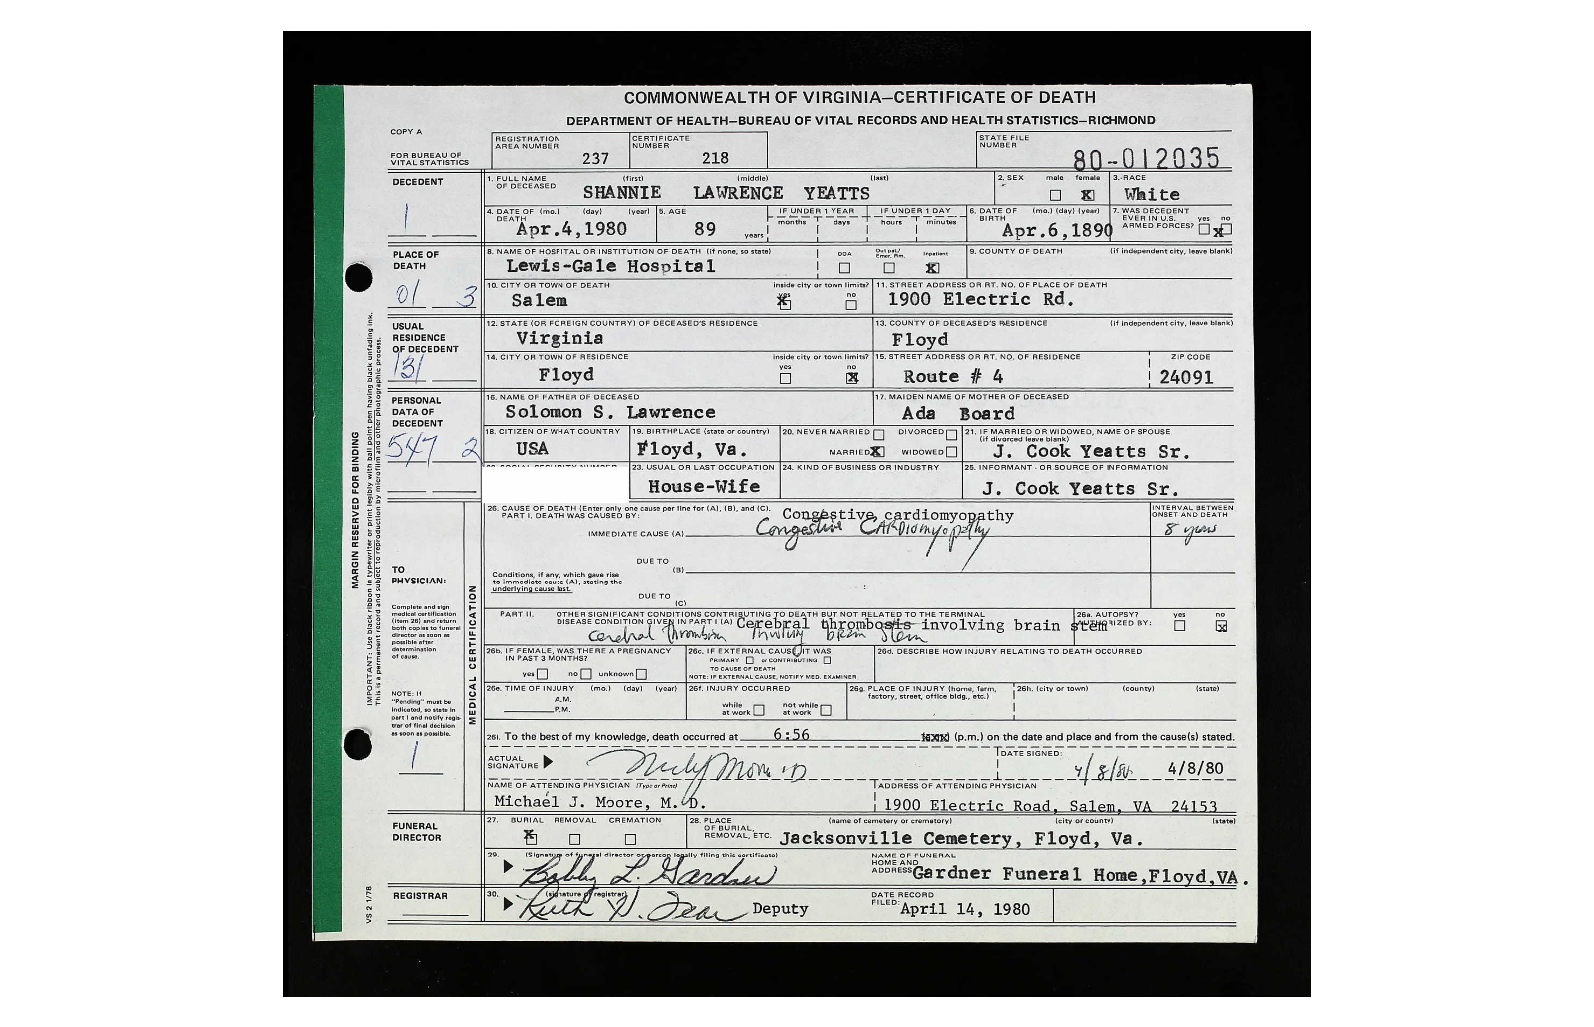 COMMONWEALTH OF VIRGINIA—CERTIFICATE OF DEATH
DEPARTMENT OF HEALTH—BUREAU OF VITAL RECORDS AND HEALTH STATISTICS—RICHMOND
COPY A
FOR BUREAU OF VITAL STATISTICS
REGISTRATION AREA NUMBER 237
CERTIFICATE NUMBER 218
STATE FILE NUMBER 80-012035
DECEDENT
1
1. FULL NAME OF DECEASED (first) (middle) (last)
SHANNIE LAWRENCE YEATTS
2. SEX male female X
3. RACE White
4. DATE OF DEATH (mo.) (day) (year) Apr.4,1980
5. AGE 89 years
IF UNDER 1 YEAR months days
IF UNDER 1 DAY hours minutes
6. DATE OF BIRTH (mo.) (day) (year) Apr.6,1890
7. WAS DECEDENT EVER IN U.S. ARMED FORCES? yes no X
PLACE OF DEATH
01 3
8. NAME OF HOSPITAL OR INSTITUTION OF DEATH (if none, so state)
Lewis-Gale Hospital
DOA Out pat./Emer. Rm. Inpatient X
9. COUNTY OF DEATH (if independent city, leave blank)
10. CITY OR TOWN OF DEATH Salem
inside city or town limits? yes X no
11. STREET ADDRESS OR RT. NO. OF PLACE OF DEATH
1900 Electric Rd.
USUAL RESIDENCE OF DECEDENT
131
12. STATE (OR FOREIGN COUNTRY) OF DECEASED'S RESIDENCE
Virginia
13. COUNTY OF DECEASED'S RESIDENCE (if independent city, leave blank)
Floyd
14. CITY OR TOWN OF RESIDENCE Floyd
inside city or town limits? yes no X
15. STREET ADDRESS OR RT. NO. OF RESIDENCE
Route # 4
ZIP CODE 24091
PERSONAL DATA OF DECEDENT
547 2
16. NAME OF FATHER OF DECEASED
Solomon S. Lawrence
17. MAIDEN NAME OF MOTHER OF DECEASED
Ada Board
18. CITIZEN OF WHAT COUNTRY USA
19. BIRTHPLACE (state or country) Floyd, Va.
20. NEVER MARRIED DIVORCED
MARRIED X WIDOWED
21. IF MARRIED OR WIDOWED, NAME OF SPOUSE (if divorced leave blank)
J. Cook Yeatts Sr.
23. USUAL OR LAST OCCUPATION House-Wife
24. KIND OF BUSINESS OR INDUSTRY
25. INFORMANT - OR SOURCE OF INFORMATION
J. Cook Yeatts Sr.
MARGIN RESERVED FOR BINDING
IMPORTANT: Use black ribbon in typewriter or print legibly with ball point pen having black unfading ink.
This is a permanent record and subject to reproduction by microfilm and other photographic process.
TO PHYSICIAN:
Complete and sign medical certification (item 26) and return both copies to funeral director as soon as possible after determination of cause.
NOTE: If "Pending" must be indicated, so state in part I and notify registrar of final decision as soon as possible.
1
MEDICAL CERTIFICATION
26. CAUSE OF DEATH (Enter only one cause per line for (A), (B), and (C).
PART I. DEATH WAS CAUSED BY:
Congestive cardiomyopathy
IMMEDIATE CAUSE (A) Congestive CARDIOmyopathy
INTERVAL BETWEEN ONSET AND DEATH
8 years
DUE TO (B)
Conditions, if any, which gave rise to immediate cause (A), stating the underlying cause last.
DUE TO (C)
PART II. OTHER SIGNIFICANT CONDITIONS CONTRIBUTING TO DEATH BUT NOT RELATED TO THE TERMINAL DISEASE CONDITION GIVEN IN PART I (A)
Cerebral thrombosis involving brain stem
Cerebral Thrombosis Involving brain stem
26a. AUTOPSY? AUTHORIZED BY: yes no X
26b. IF FEMALE, WAS THERE A PREGNANCY IN PAST 3 MONTHS?
yes no unknown
26c. IF EXTERNAL CAUSE, IT WAS
PRIMARY or CONTRIBUTING
TO CAUSE OF DEATH
NOTE: IF EXTERNAL CAUSE, NOTIFY MED. EXAMINER
26d. DESCRIBE HOW INJURY RELATING TO DEATH OCCURRED
26e. TIME OF INJURY (mo.) (day) (year)
A.M.
P.M.
26f. INJURY OCCURRED
while at work not while at work
26g. PLACE OF INJURY (home, farm, factory, street, office bldg., etc.)
26h. (city or town) (county) (state)
26i. To the best of my knowledge, death occurred at 6:56 (p.m.) on the date and place and from the cause(s) stated.
ACTUAL SIGNATURE
DATE SIGNED: 4/8/80 4/8/80
NAME OF ATTENDING PHYSICIAN (Type or Print)
Michael J. Moore, M.D.
ADDRESS OF ATTENDING PHYSICIAN
1900 Electric Road, Salem, VA 24153
FUNERAL DIRECTOR
27. BURIAL X REMOVAL CREMATION
28. PLACE OF BURIAL, REMOVAL, ETC. (name of cemetery or crematory) (city or county) (state)
Jacksonville Cemetery, Floyd, Va.
29. (Signature of funeral director or person legally filing this certificate)
Bobby L. Gardner
NAME OF FUNERAL HOME AND ADDRESS Gardner Funeral Home,Floyd,VA.
REGISTRAR
30. (signature of registrar)
Ruth Deputy
DATE RECORD FILED: April 14, 1980
VS 2 1/78